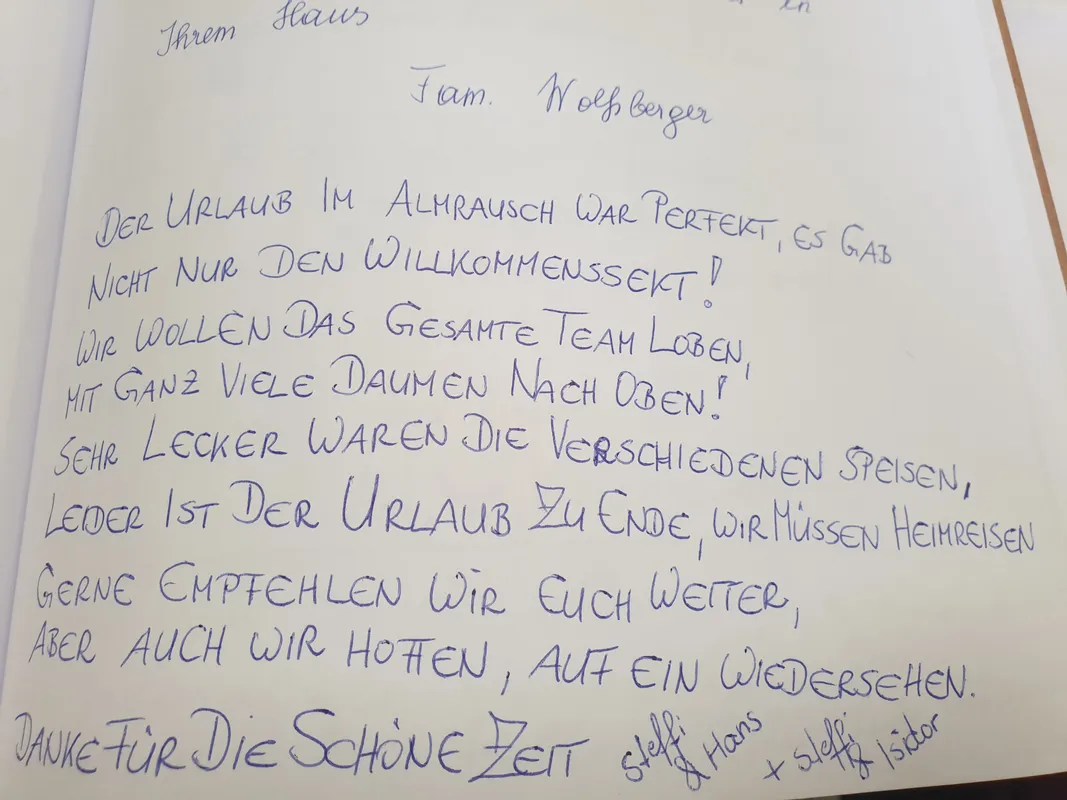 in
Ihrem Haus
Fam. Wolfsberger
DER URLAUB IM ALMRAUSCH WAR PERFEKT, ES GAB
NICHT NUR DEN WILLKOMMENSSEKT!
WIR WOLLEN DAS GESAMTE TEAM LOBEN,
MIT GANZ VIELE DAUMEN NACH OBEN!
SEHR LECKER WAREN DIE VERSCHIEDENEN SPEISEN,
LEIDER IST DER URLAUB ZU ENDE, WIR MÜSSEN HEIMREISEN
GERNE EMPFEHLEN WIR EUCH WEITER,
ABER AUCH WIR HOFFEN, AUF EIN WIEDERSEHEN.
DANKE FÜR DIE SCHÖNE ZEIT Steffi & Hans + Steffi & Isidor